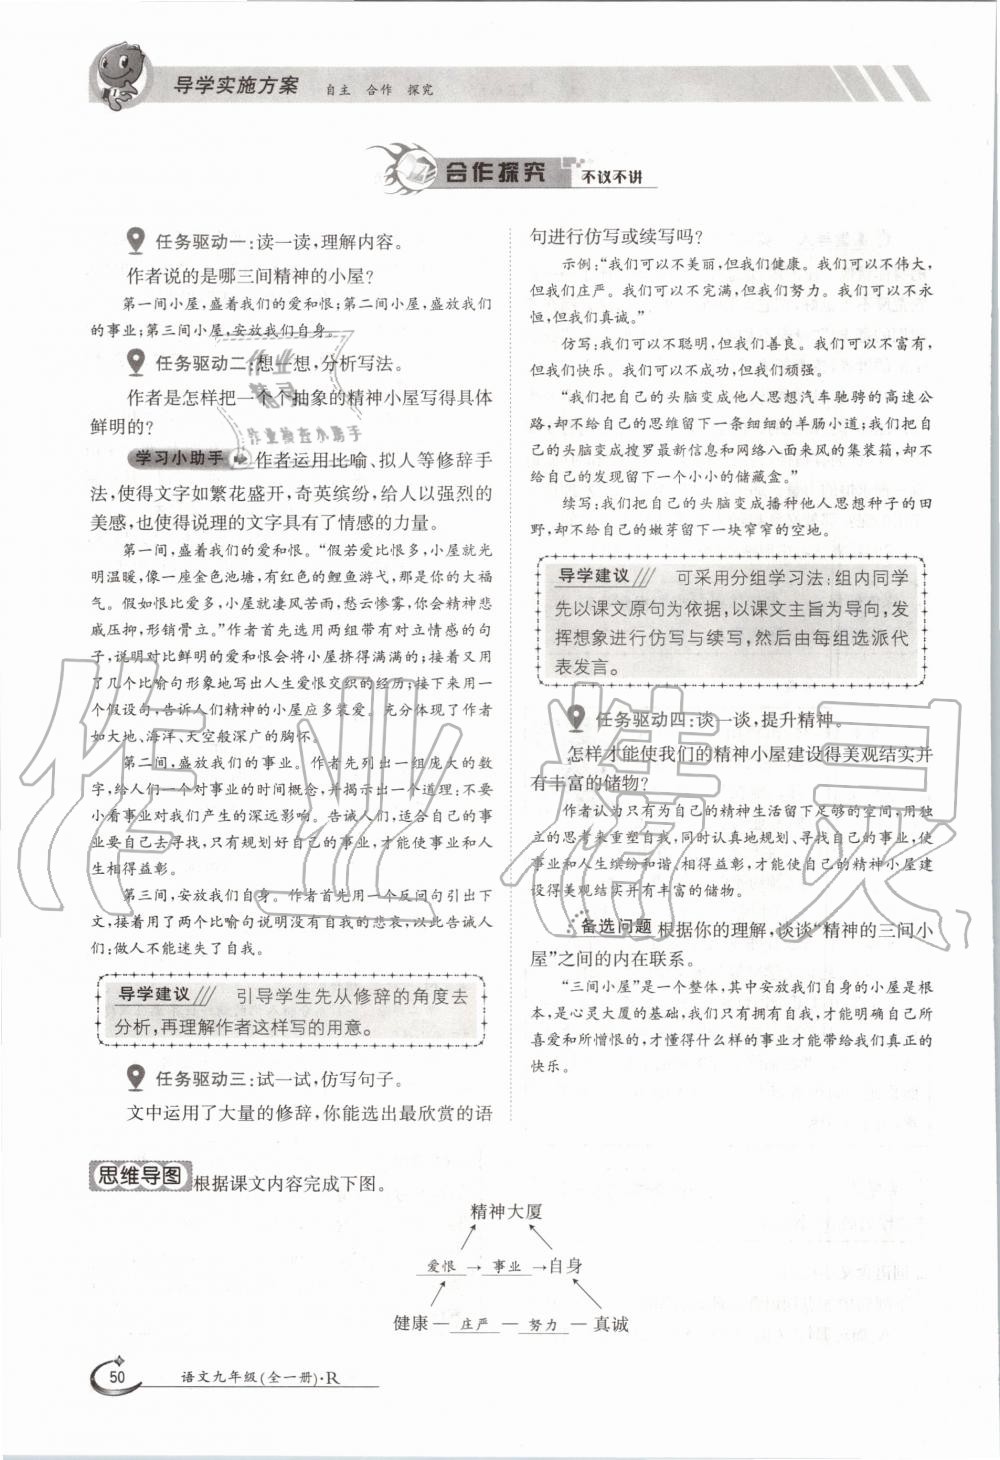 导学实施方案 自主 合作 探究
合作探究 不议不讲
任务驱动一:读一读,理解内容。
作者说的是哪三间精神的小屋?
第一间小屋,盛着我们的爱和恨;第二间小屋,盛放我们
的事业;第三间小屋,安放我们自身。
任务驱动二:想一想,分析写法。
作者是怎样把一个个抽象的精神小屋写得具体
鲜明的?
学习小助手 作者运用比喻、拟人等修辞手
法,使得文字如繁花盛开,奇英缤纷,给人以强烈的
美感,也使得说理的文字具有了情感的力量。
第一间,盛着我们的爱和恨。“假若爱比恨多,小屋就光
明温暖,像一座金色池塘,有红色的鲤鱼游弋,那是你的大福
气。假如恨比爱多,小屋就凄风苦雨,愁云惨雾,你会精神悲
戚压抑,形销骨立。”作者首先选用两组带有对立情感的句
子,说明对比鲜明的爱和恨会将小屋挤得满满的;接着又用
了几个比喻句形象地写出人生爱恨交织的经历;接下来用一
个假设句,告诉人们精神的小屋应多装爱。充分体现了作者
如大地、海洋、天空般深广的胸怀。
第二间,盛放我们的事业。作者先列出一组庞大的数
字,给人们一个对事业的时间概念,并揭示出一个道理:不要
小看事业对我们产生的深远影响。告诫人们,适合自己的事
业要自己去寻找,只有规划好自己的事业,才能使事业和人
生相得益彰。
第三间,安放我们自身。作者首先用一个反问句引出下
文,接着用了两个比喻句说明没有自我的悲哀,以此告诫人
们:做人不能迷失了自我。
导学建议 引导学生先从修辞的角度去
分析,再理解作者这样写的用意。
任务驱动三:试一试,仿写句子。
文中运用了大量的修辞,你能选出最欣赏的语
句进行仿写或续写吗?
示例:“我们可以不美丽,但我们健康。我们可以不伟大,
但我们庄严。我们可以不完满,但我们努力。我们可以不永
恒,但我们真诚。”
仿写:我们可以不聪明,但我们善良。我们可以不富有,
但我们快乐。我们可以不成功,但我们顽强。
“我们把自己的头脑变成他人思想汽车驰骋的高速公
路,却不给自己的思维留下一条细细的羊肠小道;我们把自
己的头脑变成搜罗最新信息和网络八面来风的集装箱,却不
给自己的发现留下一个小小的储藏盒。”
续写:我们把自己的头脑变成播种他人思想种子的田
野,却不给自己的嫩芽留下一块窄窄的空地。
导学建议 可采用分组学习法:组内同学
先以课文原句为依据,以课文主旨为导向,发
挥想象进行仿写与续写,然后由每组选派代
表发言。
任务驱动四:谈一谈,提升精神。
怎样才能使我们的精神小屋建设得美观结实并
有丰富的储物?
作者认为只有为自己的精神生活留下足够的空间,用独
立的思考来重塑自我,同时认真地规划、寻找自己的事业,使
事业和人生缤纷和谐、相得益彰,才能使自己的精神小屋建
设得美观结实并有丰富的储物。
备选问题 根据你的理解,谈谈“精神的三间小
屋”之间的内在联系。
“三间小屋”是一个整体,其中安放我们自身的小屋是根
本,是心灵大厦的基础,我们只有拥有自我,才能明确自己所
喜爱和所憎恨的,才懂得什么样的事业才能带给我们真正的
快乐。
思维导图 根据课文内容完成下图。
精神大厦
爱恨→事业→自身
健康—庄严—努力—真诚
50 语文九年级(全一册)·R
作业精灵
作业
精灵
作业检查小助手